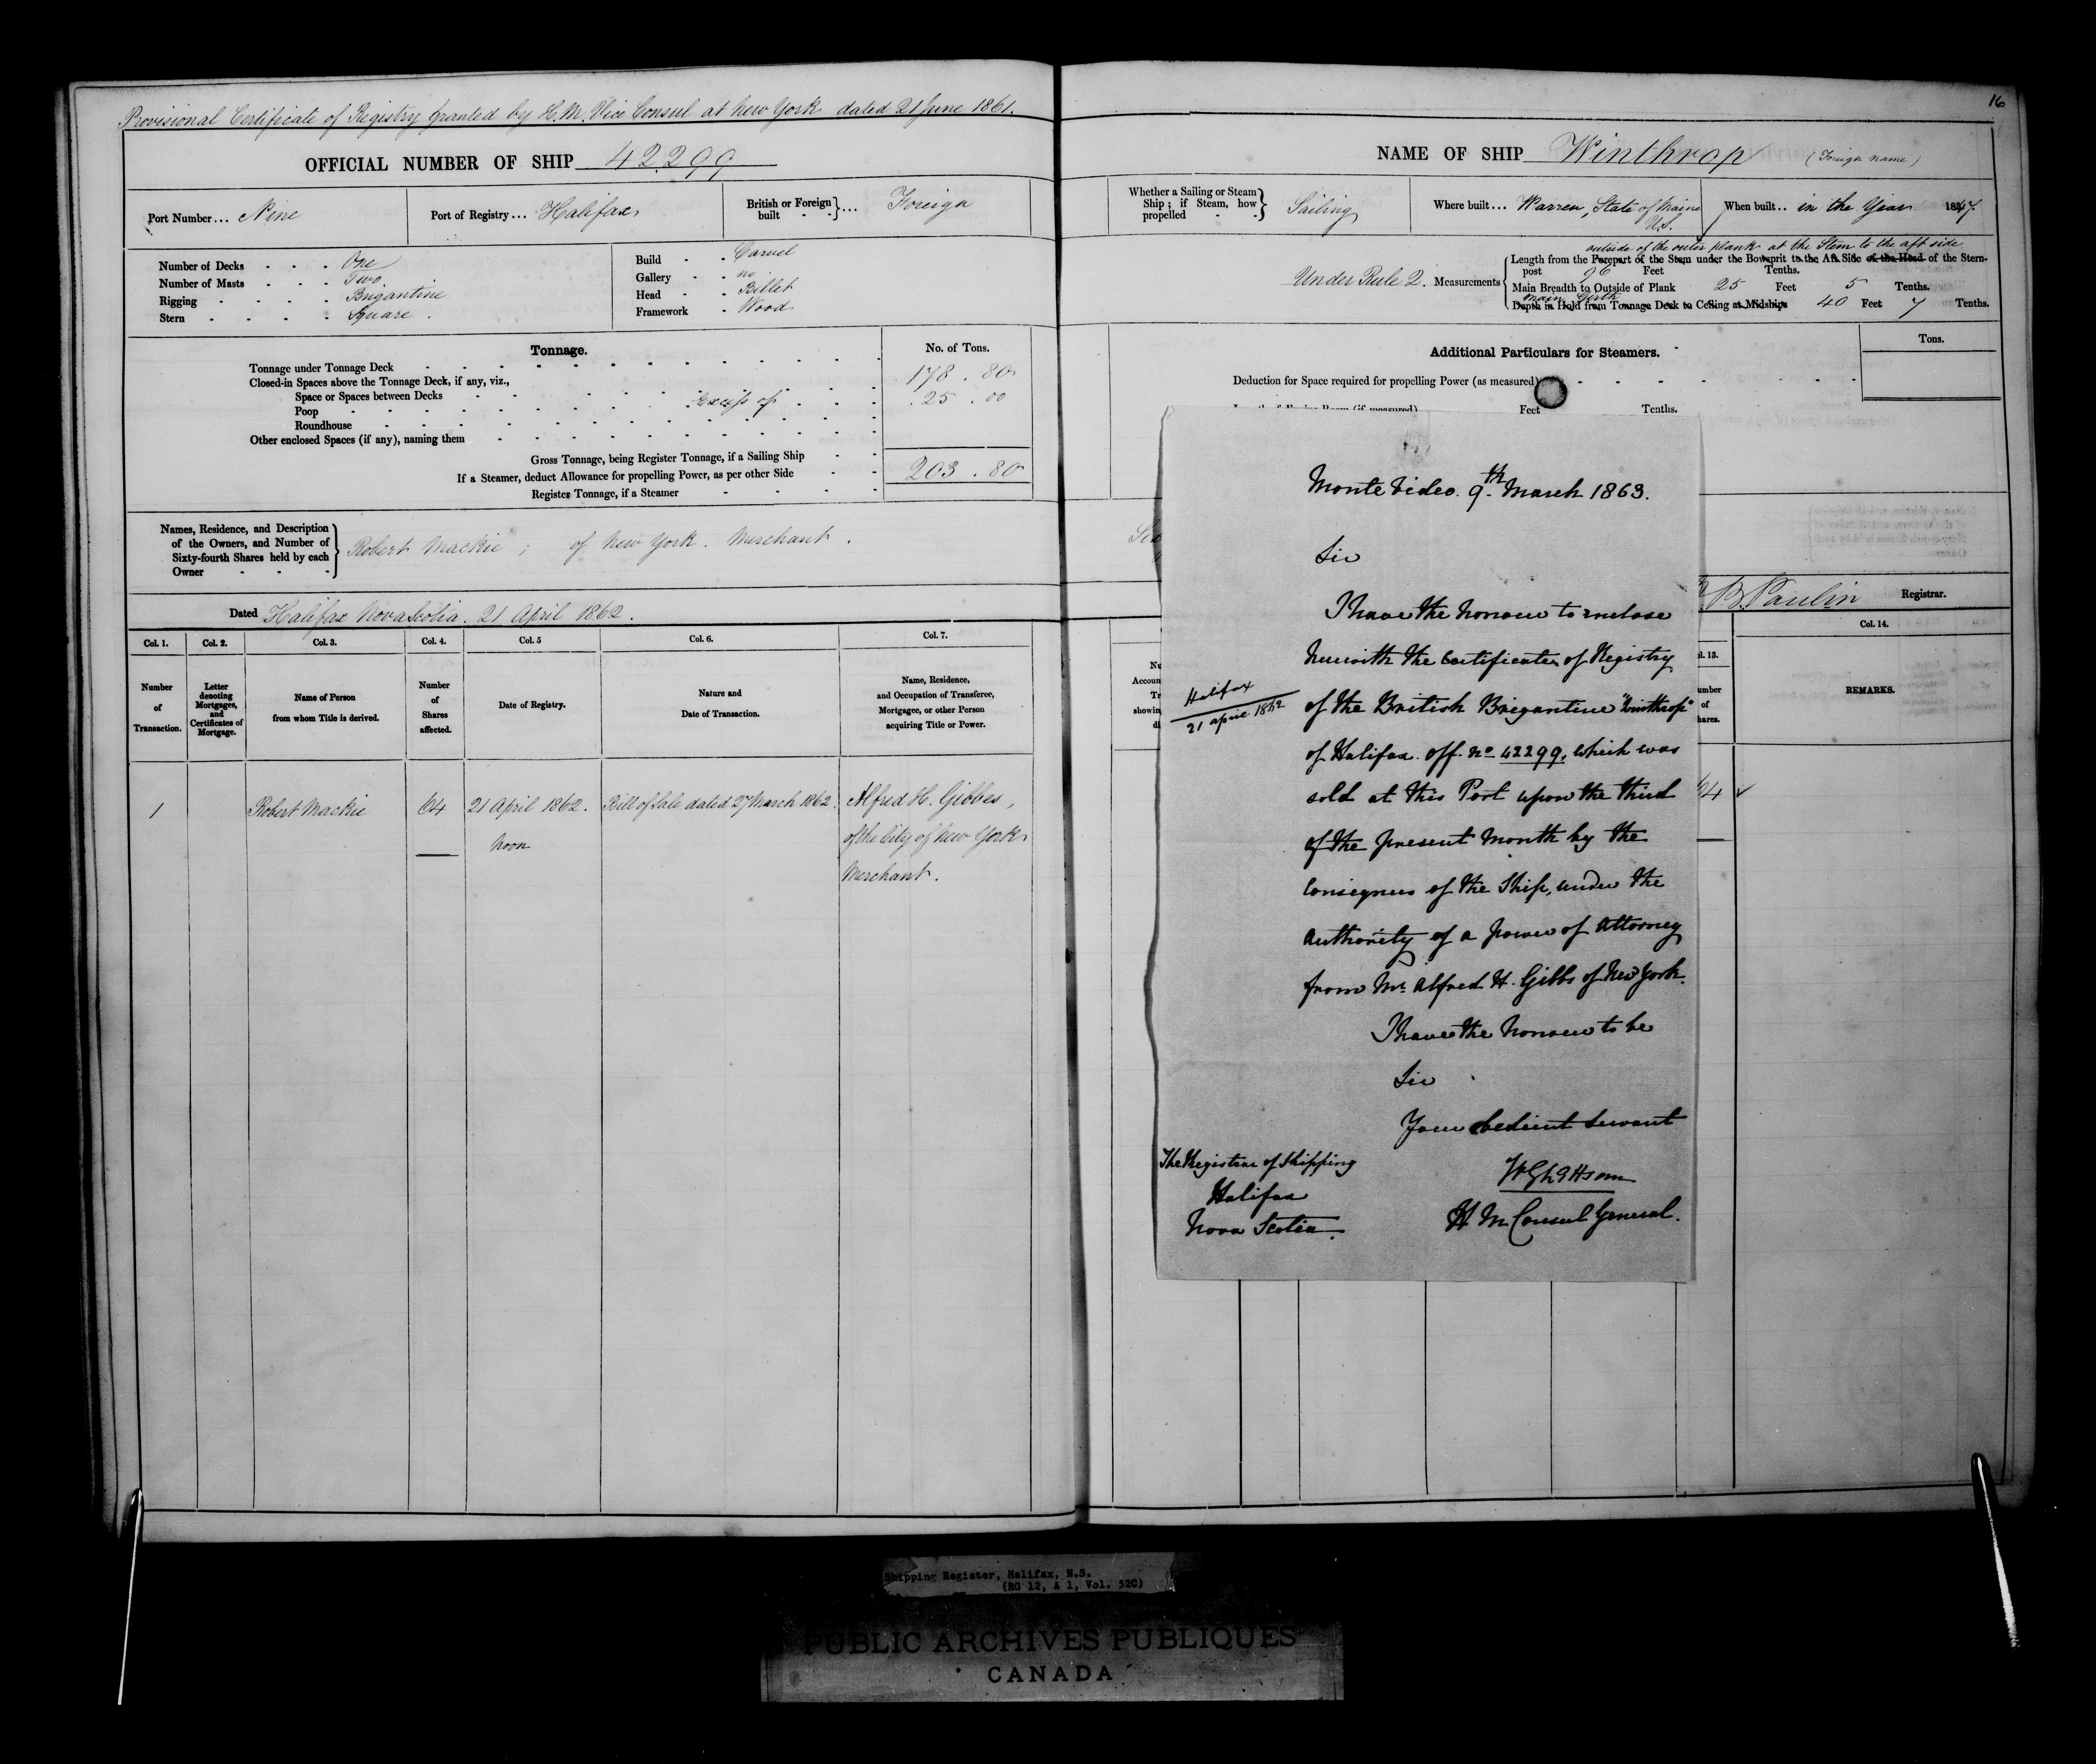 Provisional Certificate of Registry granted by H.M. Vice Consul at New York dated 21 June 1861.
OFFICIAL NUMBER OF SHIP 42299
Port Number... Nine
Port of Registry... Halifax
British or Foreign built - -}... Foreign
Number of Decks - - - One
Number of Masts - - - Two
Rigging - - - - Brigantine
Stern - - - - Square.
Build - - Carvel
Gallery - - no
Head - - Billet
Framework - Wood
Tonnage.
No. of Tons.
Tonnage under Tonnage Deck 178.80
Closed-in Spaces above the Tonnage Deck, if any, viz.,
Space or Spaces between Decks Excess of 25.00
Poop
Roundhouse
Other enclosed Spaces (if any), naming them
Gross Tonnage, being Register Tonnage, if a Sailing Ship 203.80
If a Steamer, deduct Allowance for propelling Power, as per other Side
Register Tonnage, if a Steamer
Names, Residence, and Description
of the Owners, and Number of
Sixty-fourth Shares held by each
Owner - - -
Robert Mackie; of New York. Merchant.
Dated Halifax Nova Scotia. 21 April 1862.
Col. 1. Col. 2. Col. 3. Col. 4. Col. 5 Col. 6. Col. 7.
Number of Transaction.
Letter denoting Mortgages, and Certificates of Mortgage.
Name of Person from whom Title is derived.
Number of Shares affected.
Date of Registry.
Nature and Date of Transaction.
Name, Residence, and Occupation of Transferee, Mortgagee, or other Person acquiring Title or Power.
1 Robert Mackie 64 21 April 1862. Bill of Sale dated 27 March 1862. Alfred H. Gibbes,
noon of the City of New York
Merchant.
16
NAME OF SHIP Winthrop (Foreign name)
Whether a Sailing or Steam Ship; if Steam, how propelled - -} Sailing
Where built... Warren, State of Maine U.S.
When built.. in the Year 1847.
Under Rule 2. Measurements
outside of the outer plank at the Stem to the aft side
Length from the Forepart of the Stem under the Bowsprit to the Aft Side of the Head of the Stern-
post 96 Feet Tenths.
Main Breadth to Outside of Plank 25 Feet 5 Tenths.
main Girth
Depth in Hold from Tonnage Deck to Ceiling at Midships 40 Feet 7 Tenths.
Additional Particulars for Steamers.
Tons.
Deduction for Space required for propelling Power (as measured)
Feet Tenths.
B. Paulin Registrar.
Col. 14.
REMARKS.
Monte Video. 9th March 1863.
Sir
I have the honour to enclose
herewith the Certificate of Registry
Halifax
21 April 1862
of the British Brigantine "Winthrop"
of Halifax. Off. No 42299, which was
sold at this Port upon the third
of the present Month by the
Consignees of the Ship, under the
authority of a power of Attorney
from Mr. Alfred H. Gibbs of New York.
I have the honour to be
Sir
Your obedient Servant
H M Consul General.
The Registrar of Shipping
Halifax
Nova Scotia.
Shipping Register, Halifax, N.S.
(RG 12, A 1, Vol. 520)
PUBLIC ARCHIVES PUBLIQUES
CANADA